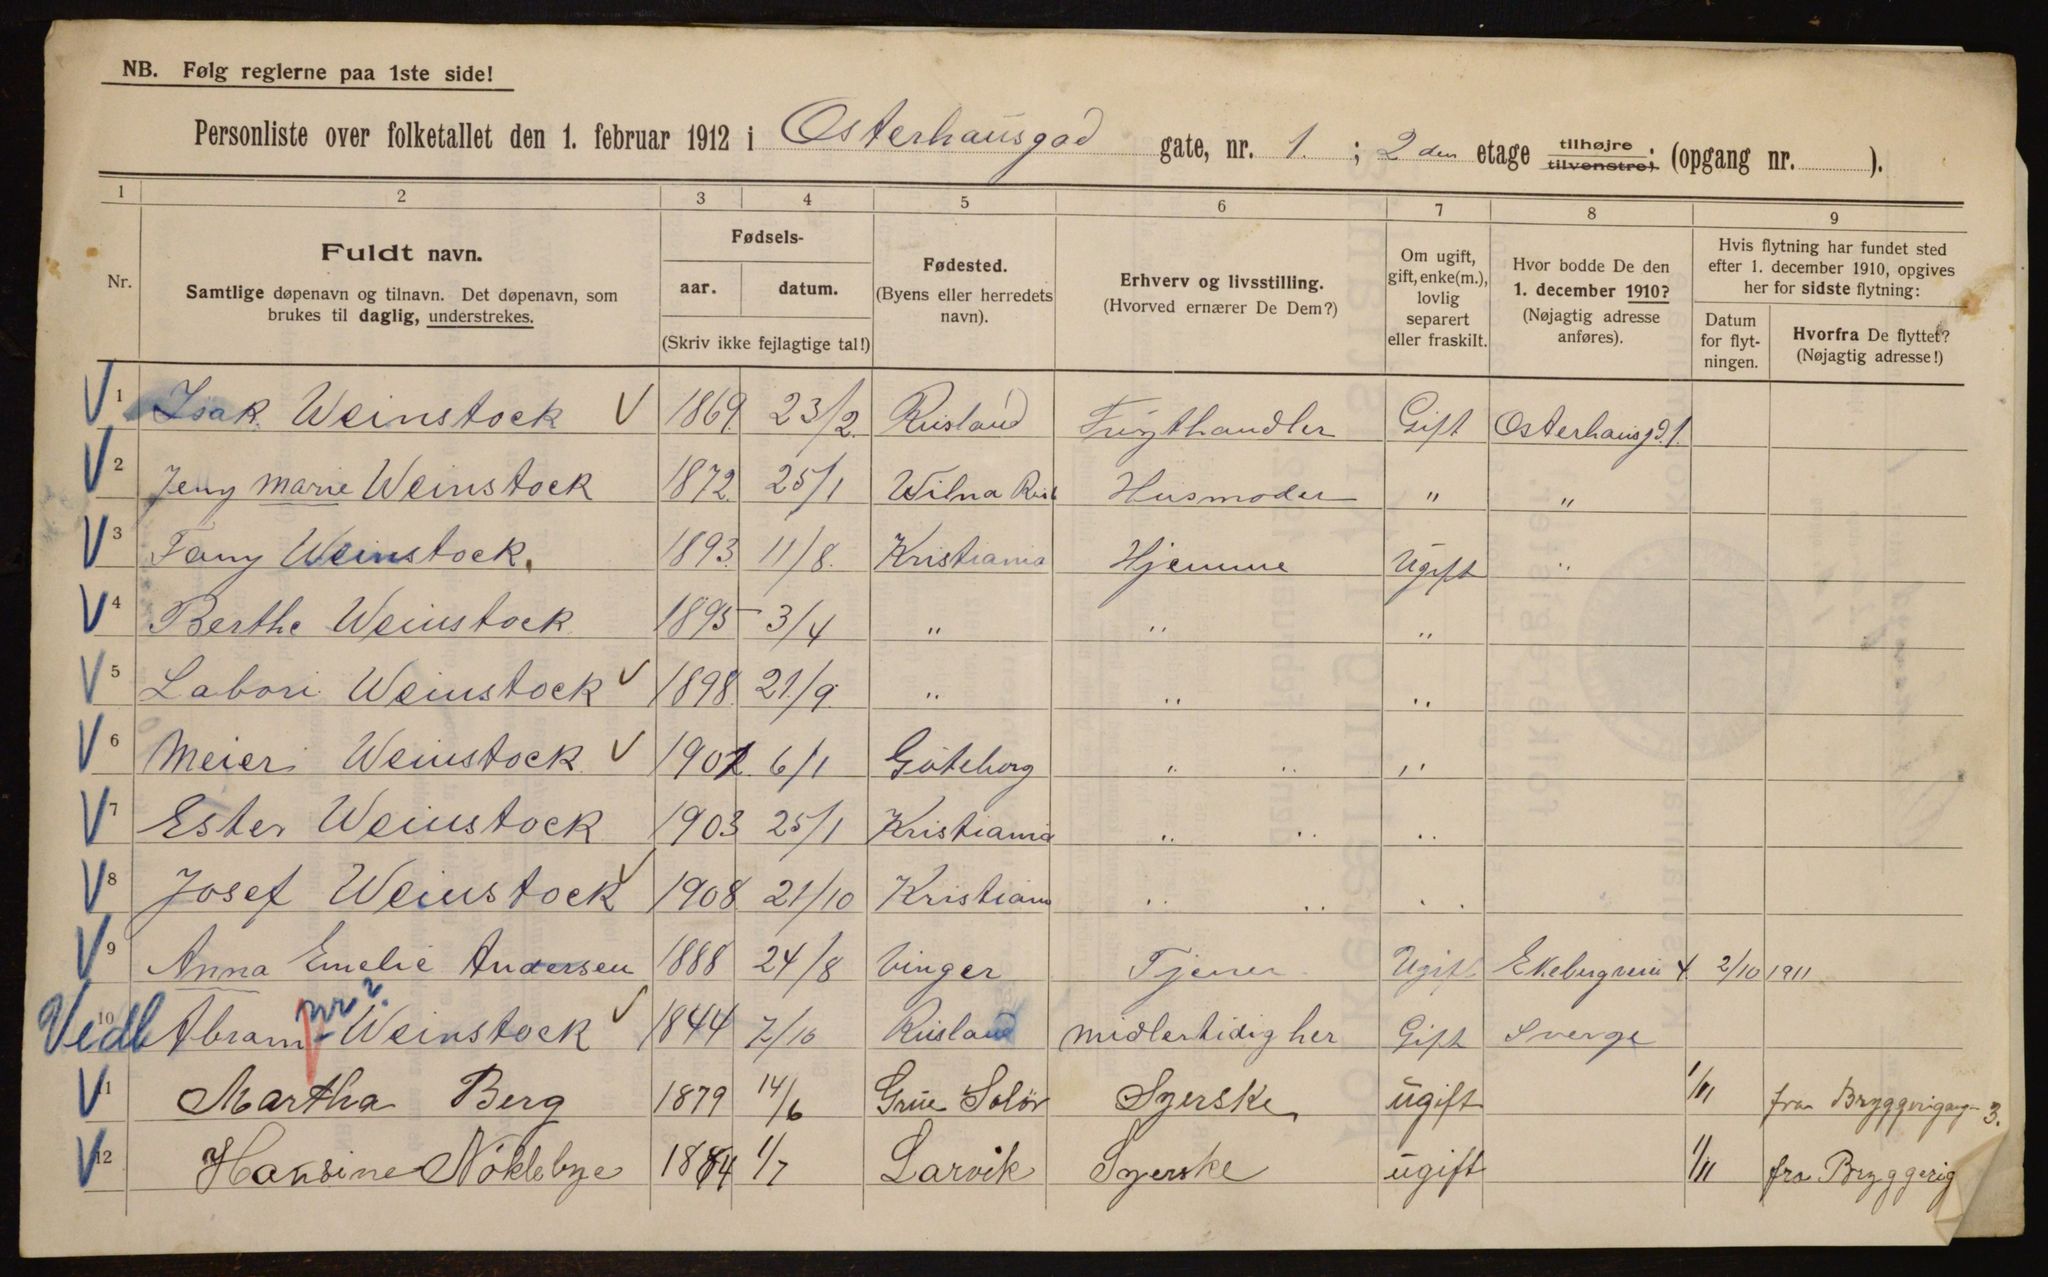 NB. Følg reglerne paa 1ste side!
Personliste over folketallet den 1. februar 1912 i Osterhausgad gate, nr. 1. ; 2 den etage tilhøjre tilvenstre; (opgang nr. ).
1 2 3 4 5 6 7 8 9
Nr.
Fuldt navn.
Samtlige døpenavn og tilnavn. Det døpenavn, som
brukes til daglig, understrekes.
Fødsels-
aar. datum.
(Skriv ikke fejlagtige tal!)
Fødested.
(Byens eller herredets
navn).
Erhverv og livsstilling.
(Hvorved ernærer De Dem?)
Om ugift,
gift, enke(m.),
lovlig
separert
eller fraskilt.
Hvor bodde De den
1. december 1910?
(Nøjagtig adresse
anføres).
Hvis flytning har fundet sted
efter 1. december 1910, opgives
her for sidste flytning:
Datum
for flyt-
ningen.
Hvorfra De flyttet?
(Nøjagtig adresse!)
V 1 Isak Weinstock V 1869. 23/2. Rusland Frugthandler Gift Osterhausgd. 1.
V 2 Jeny Marie Weinstock 1872. 25/1 Wilna Rusl Husmoder " "
V 3 Fany Weinstock. 1893. 11/8. Kristiania Hjemme Ugift "
V 4 Berthe Weinstock 1895 3/4 " " "
V 5 Labori Weinstock V 1898. 21/9. " " "
V 6 Meier Weinstock V 1902. 6/1 Göteborg " " "
V 7 Ester Weinstock 1903 25/1 Kristiania " " "
V 8 Josef Weinstock V 1908 21/10 Kristiania " " "
V 9 Anna Emelie Andersen 1888 24/8 Vinger Tjener Ugift Ekebergveien 4. 2/10 1911
Vedl 10 Abram Weinstock V 1844 7/10 Rusland midlertidig her Gift Sverge
V 11 Martha Berg 1879 14/6 Grue Solör Syerske ugift 1/11 fra Bryggerigangen 3.
V 12 Hansine Nöklebye 1884 1/7 Larvik Syerske ugift 1/11 fra Bryggerig